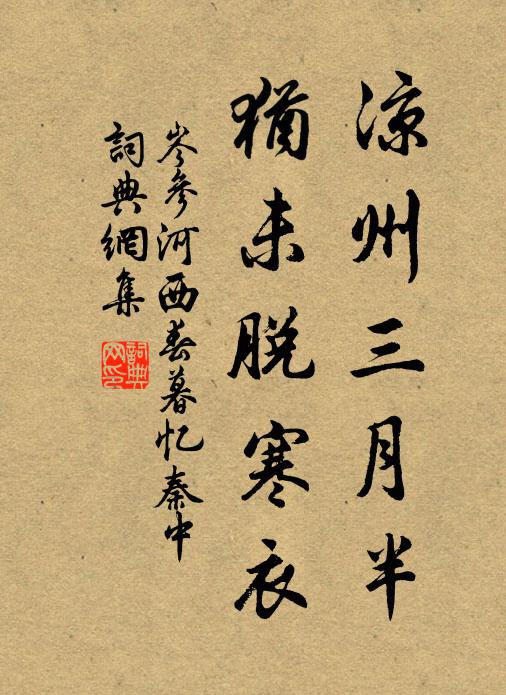 凉州三月半
猶未脱寒衣
岑參河西春暮忆秦中
詞典網集
詞典網印